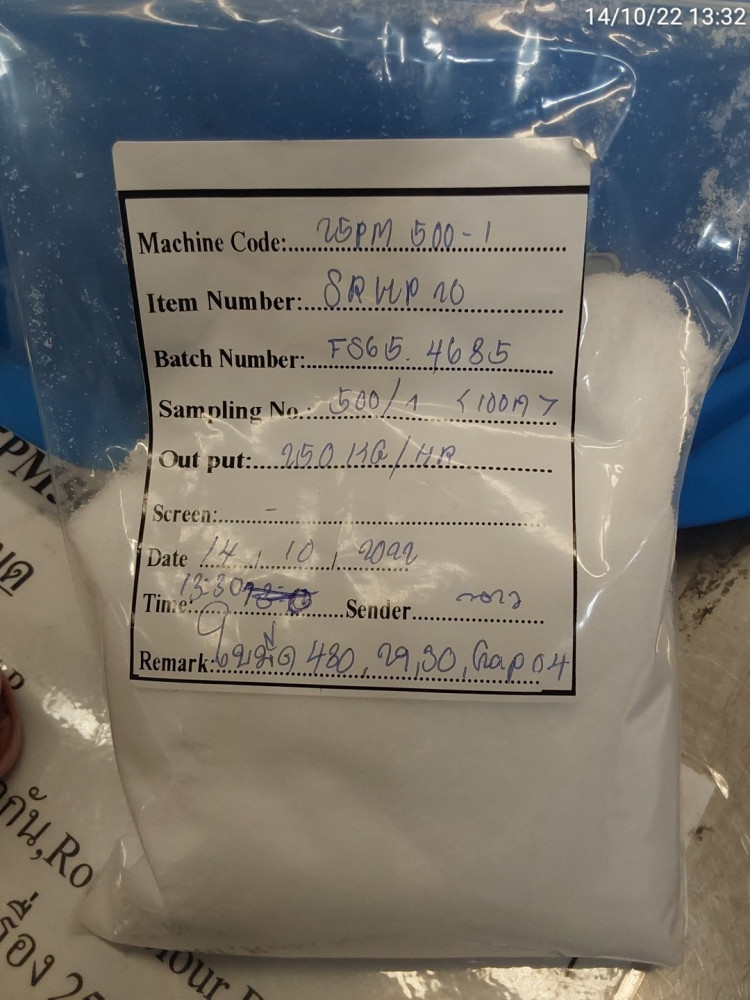 14/10/22 13:32
Machine Code: 25PM 500-1
Item Number: SRWP 20
Batch Number: FS65. 4685
Sampling No.: 500/1 <100M>
Out put: 250 KG/HR
Screen: -
Date 14, 10, 2022
Time: 13:30 Sender
Remark: ใบมีด 480, 29,30, Gap 04
PM
กัน,Ro
รื่อง 25
our